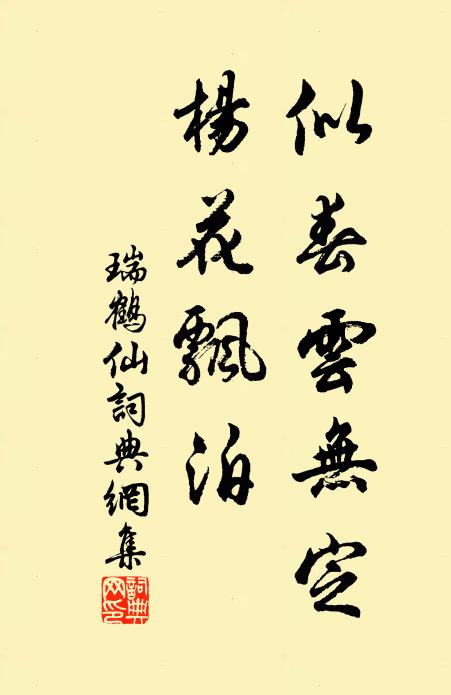 似春雲無定
楊花飄泊
瑞鶴仙詞典網集
詞典网印